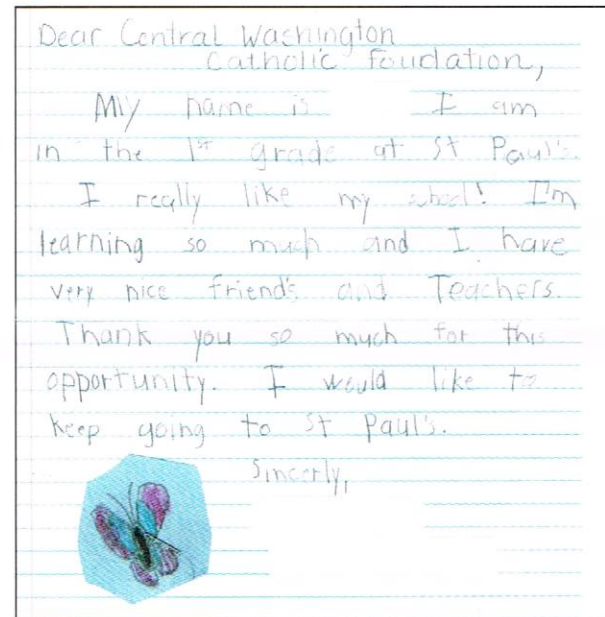 Dear Central Washington
Catholic Foudation,
My name is I am
in the 1st grade at St Paul's.
I really like my school! I'm
learning so much and I have
very nice friend's and Teachers.
Thank you so much for this
opportunity. I would like to
keep going to St Paul's.
Sincerly,